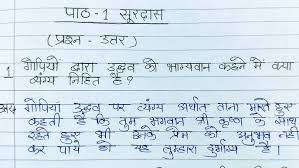 पाठ-1 सूरदास
(प्रश्न - उतर)
1 गोपियों द्वारा उद्धव को भाग्यवान कहने में क्या
व्यंग्य निहित है?
गोपियां उद्धव पर व्यंग्य अर्थात ताना मारते हुए
कहती हैं कि तुम भगवान श्री कृष्ण के साथ
रहते हुए भी उनके प्रेम को अनुभव नहीं
कर पाये हो यह तुम्हारा दुर्भाग्य है।